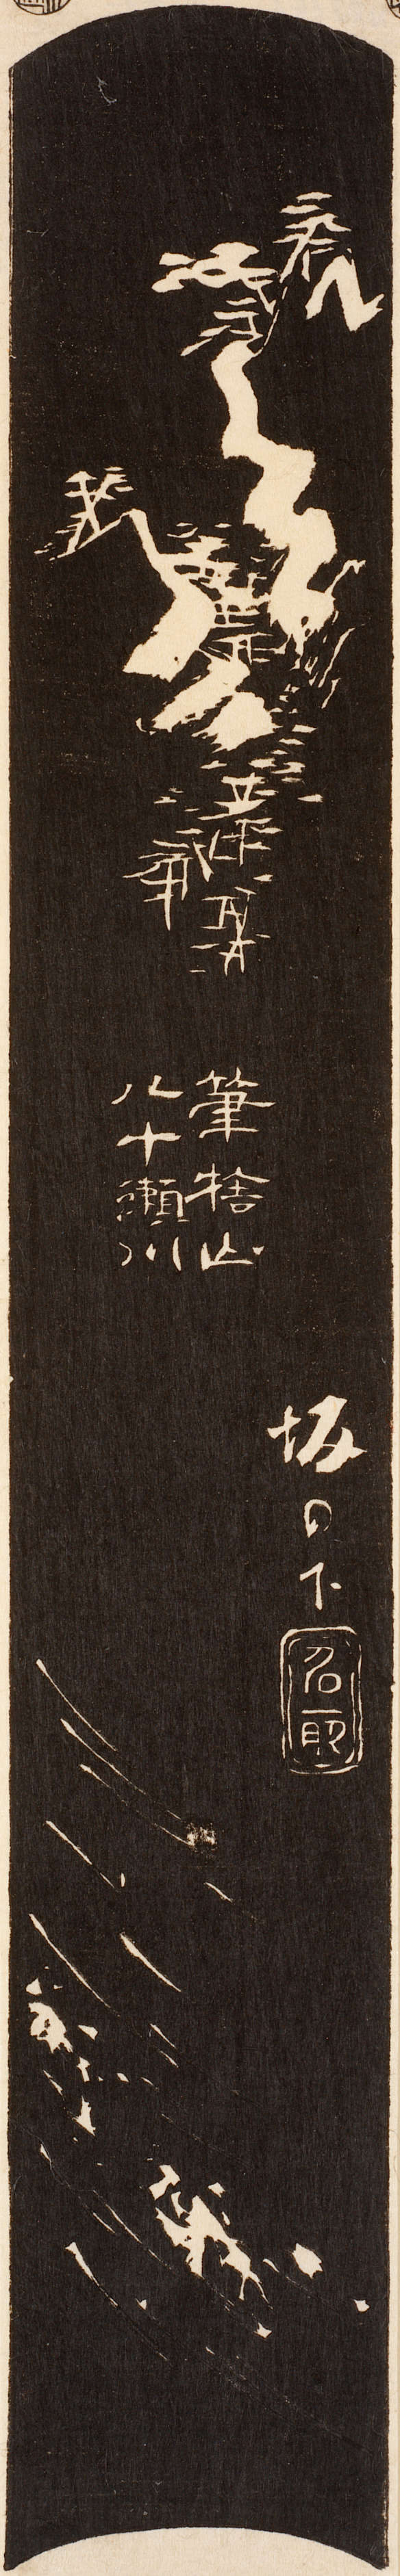 筆捨山
八十瀬川
坂の下
名取